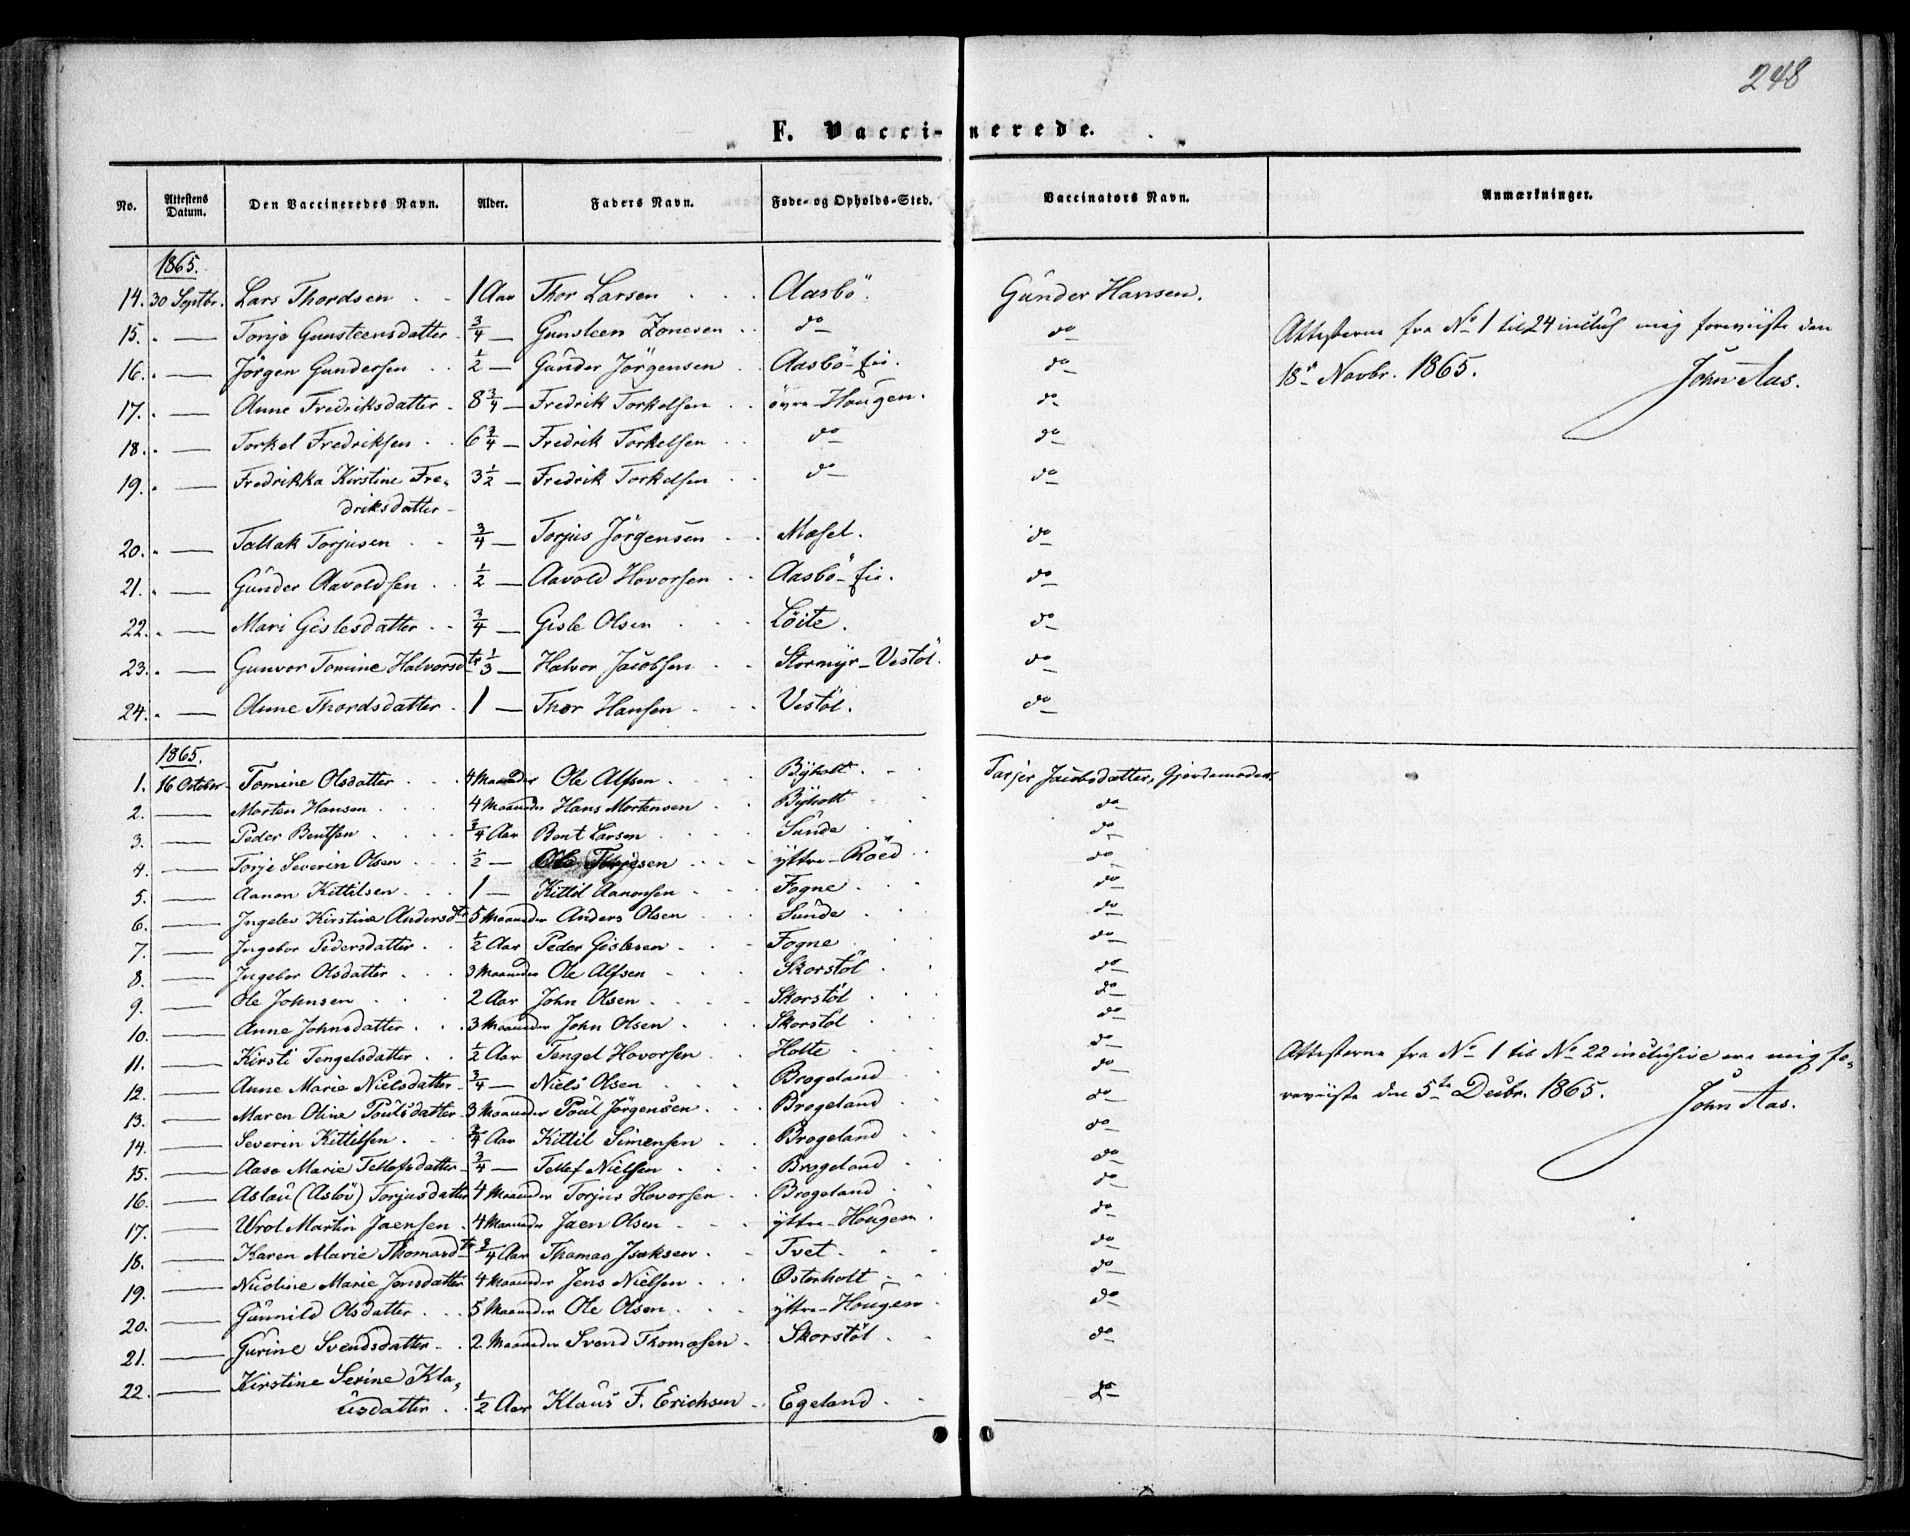 248
F. Vaccinerede.
No. | Attestens Datum. | Den Vaccineredes Navn. | Alder. | Faders Navn. | Føde- og Opholds-Sted. | Vaccinators Navn. | Anmærkninger.
1865.
14. 30 Septbr. Lars Thordsen 1 Aar Thor Larsen Aasbö. Gunder Hansen.
15. " — Tonje Gunsteensdatter ¾ — Gunsteen Zonesen do do Attesterne fra No 1 til 24 inclus mig foreviiste den
16. " — Jörgen Gundersen ½ — Gunder Jörgensen Aasbö-Eie. do 18de Novbr. 1865. John Aas.
17. " — Anne Fredriksdatter 8 ¾ — Fredrik Torkelsen öyre-Hougen. do
18. " — Torkel Fredriksen 6 ¾ — Fredrik Torkelsen do do
19. " — Fredrikka Kirstine Fre- 3 ½ — Fredrik Torkelsen do do
driksdatter
20. " — Tallak Torjusen ¾ — Torjus Jörgensen Mosel. do
21. " — Gunder Aavoldsen ½ — Aavold Hovorsen Aasbö-Eie. do
22. " — Mari Gislesdatter ¾ — Gisle Olsen Löite. do
23. " — Gunvor Tomine Halvorsdtr ⅓ — Halvor Jacobsen Stormyr-Vestöl. do
24. " — Anne Thordsdatter 1 — Thor Hansen Vestöl. do
1865.
1. 16 October Tomine Olsdatter 4 Maaneder Ole Alfsen Byholt. Tarjer Jacobsdatter, Gjordemoder
2. — Morten Hansen 4 Maaneder Hans Mortensen Byholt do
3. — Peder Bentsen ¾ Aar Bent Larsen Sunde do
4. — Torje Severin Olsen ½ — Ole Torjesen yttre-Röed do
5. — Aanon Kittilsen 1 — Kittil Aanonsen Fogne do
6. — Ingelev Kirstine Andersdtr 5 Maaneder Anders Olsen Sunde do
7. — Ingebor Pedersdatter ½ Aar Peder Gislesen Fogne do
8. — Ingebor Olsdatter 3 Maaneder Ole Alfsen Skorstöl do
9. — Ole Johnsen 2 Aar John Olsen Skorstöl do
10. — Anne Johnsdatter 3 Maaneder John Olsen Skorstöl do
11. — Kirsti Tengelsdatter ½ Aar Tengel Hovorsen Holte do Attesterne fra No 1 til No 22 inclusive ere mig fo-
12. — Anne Marie Nielsdatter ¾ — Niels Olsen Brogeland do
13. — Maren Oline Poulsdatter 3 Maaneder Poul Jörgensen Brogeland do reviiste den 5te Decbr. 1865. John Aas.
14. — Severin Kittilsen ¾ Aar Kittil Simensen Brogeland do
15. — Aase Marie Tellefsdatter ¾ — Tellef Nielsen Brogeland do
16. — Aslau (Aslöv) Torjusdatter 4 Maaneder Torjus Hovorsen Brogeland do
17. — Wrol Martin Jaensen 4 Maaneder Jaen Olsen yttre-Hougen do
18. — Karen Marie Thomasdtr ¾ Aar Thomas Isaksen Tvet. do
19. — Nicoline Marie Jensdatter 4 Maaneder Jens Nielsen Osterholt do
20. — Gunnild Olsdatter 5 Maaneder Ole Olsen yttre-Hougen do
21. — Gurine Svendsdatter 2 Maaneder Svend Thomasen Skorstöl do
22. — Kirstine Serine Kla-
usdatter ½ Aar Klaus F. Erichsen Egeland do